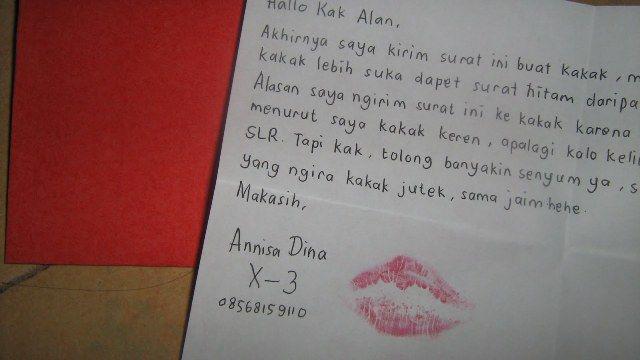 Hallo Kak Alan,
Akhirnya saya kirim surat ini buat kakak, m
kakak lebih suka dapet surat hitam daripa
Alasan saya ngirim surat ini ke kakak karena
menurut saya kakak keren, apalagi kalo keli
SLR. Tapi kak, tolong banyakin senyum ya, s
yang ngira kakak jutek, sama jaim hehe.
Makasih,
Annisa Dina
X-3
08568159110